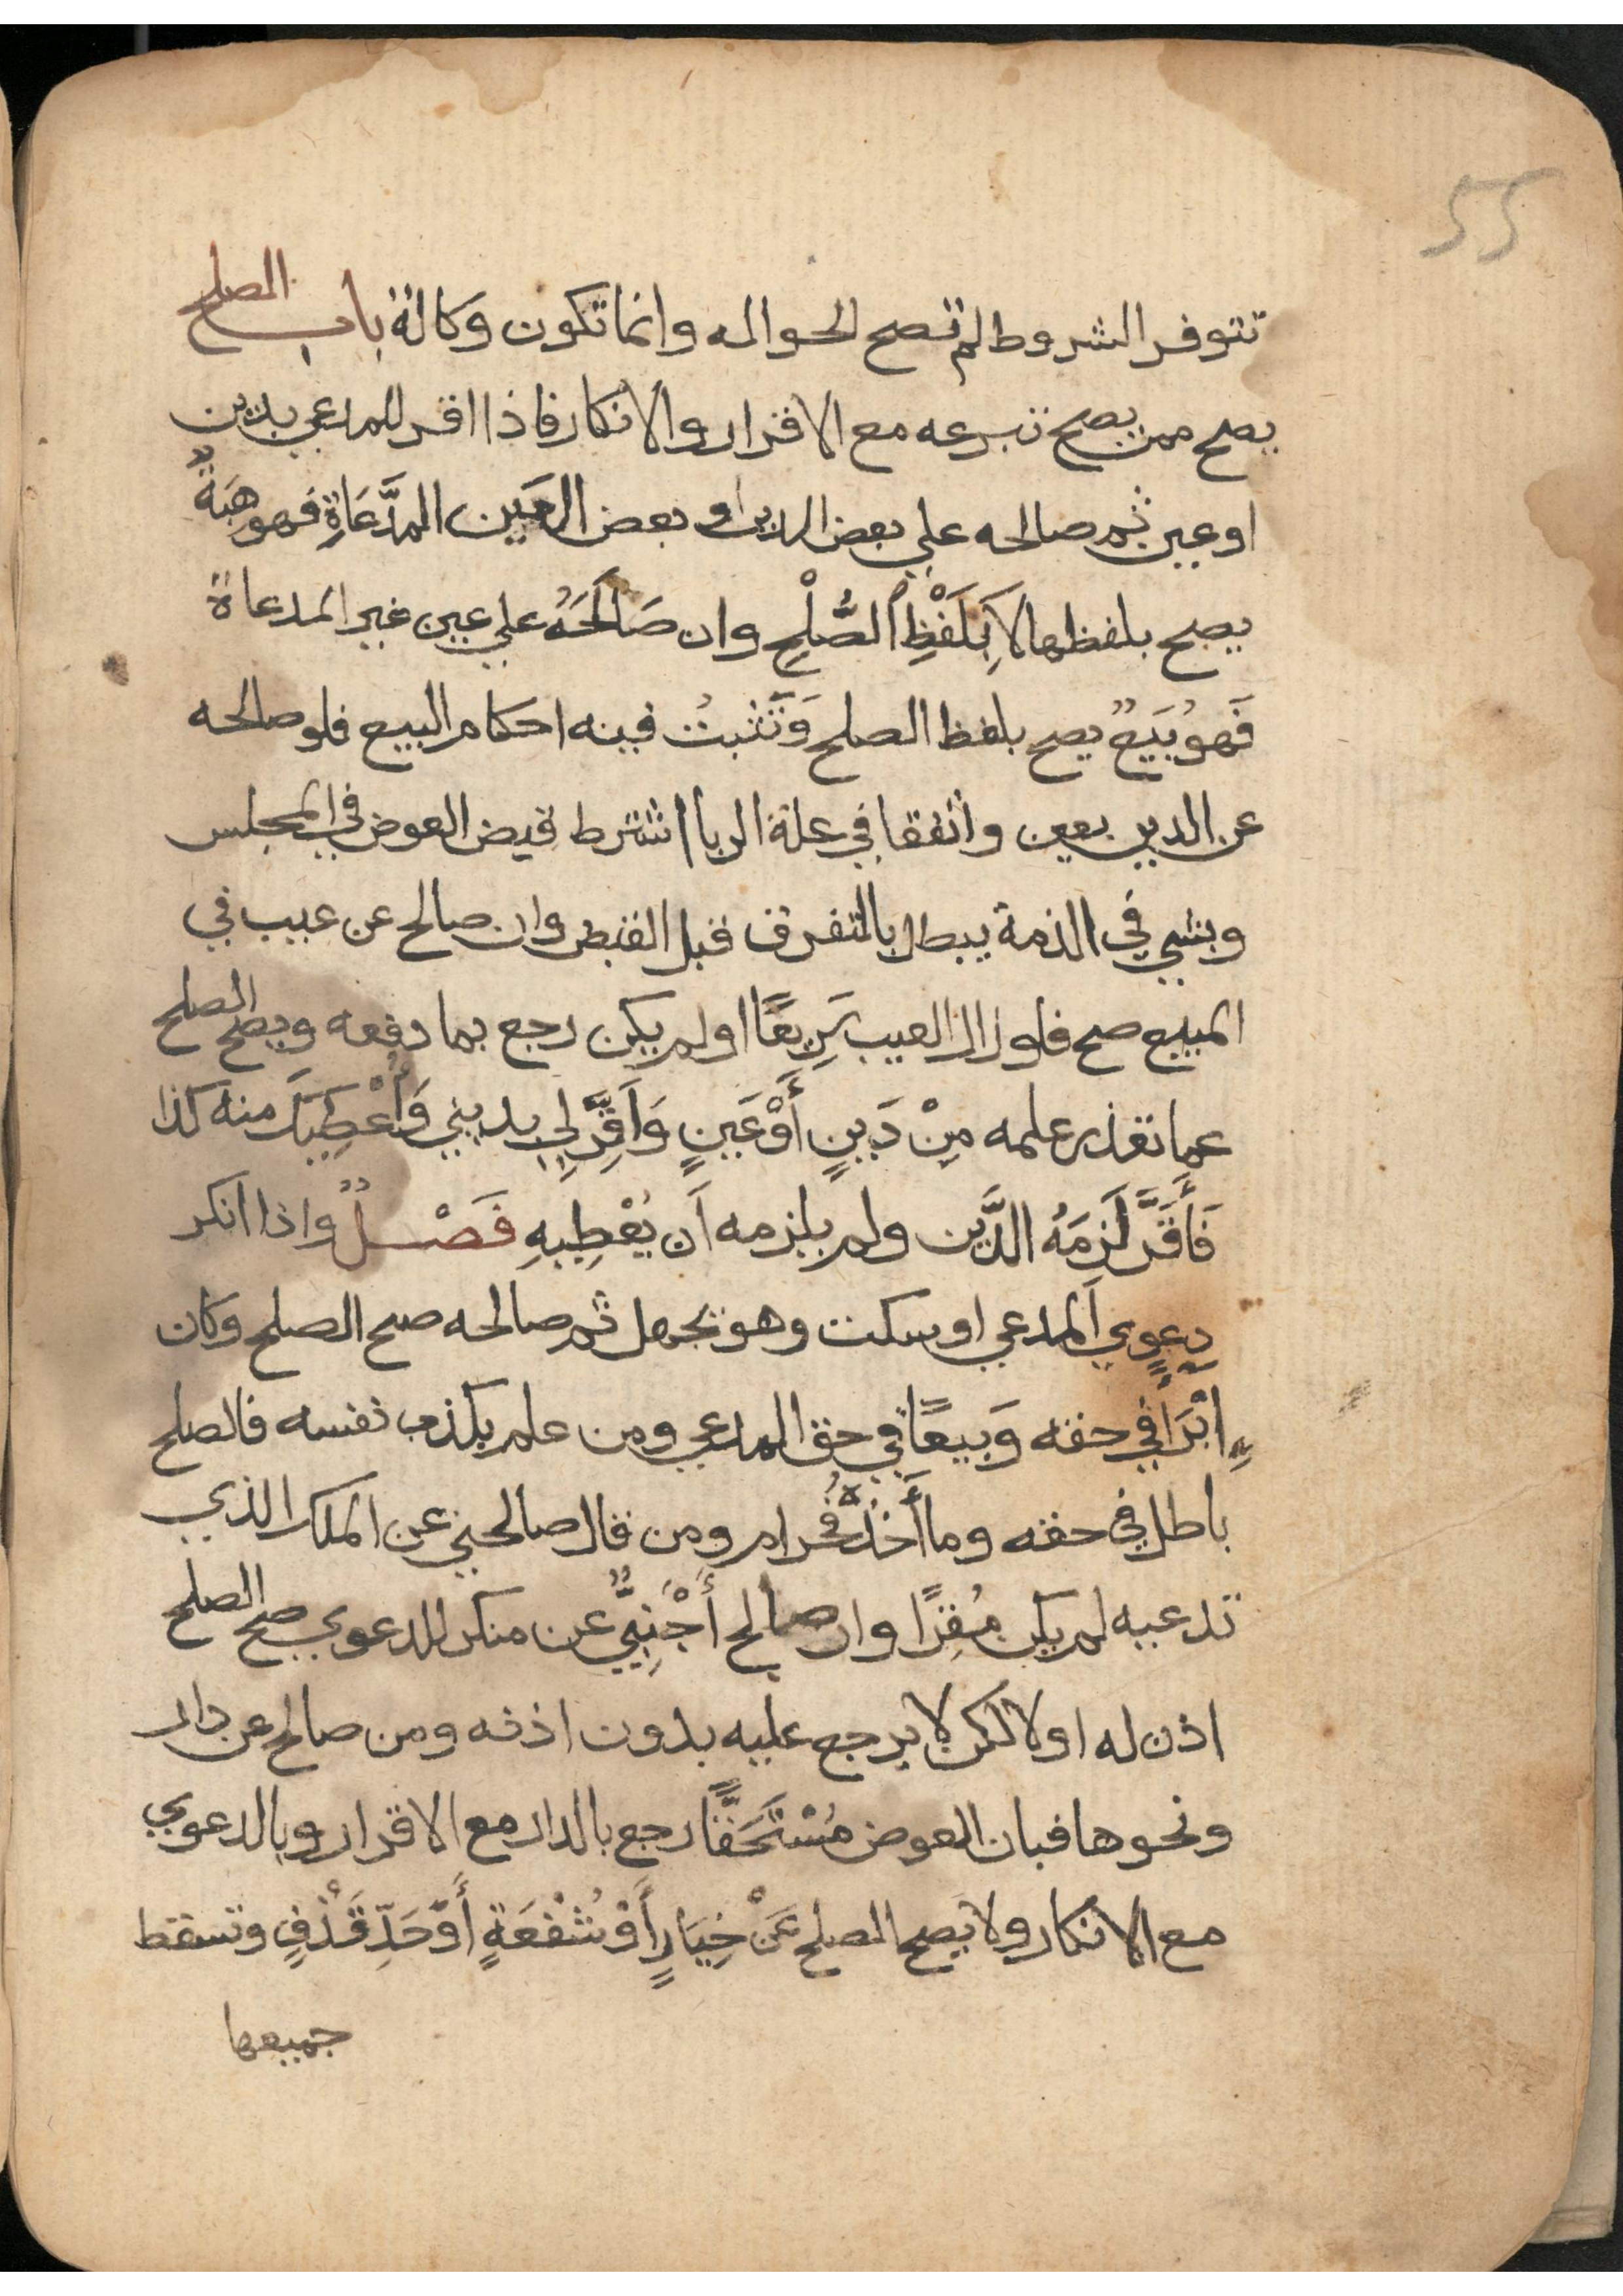 55
تتوفر الشروط لم تصح الحواله وانما تكون وكالة باب الصلح
يصح ممن يصح تبرعه مع الاقرار والانكار فاذا اقر للمدعي بدين
او عين ثم صالحه علي بعض الدين او بعض العَين المدَّعَاةِ فهو هِبَةٌ
يصح بلفظها لا بِلَفْظِ الصُّلْحِ وان صَالَحَهُ علي عين غير المدعاة
فَهوُ بَيَعٌ يصح بلفظ الصلح وَتَثبتُ فيه احكام البيع فلو صالحه
عن الدين بعين واتفقا في علة الربا اشترط قبض العوض في المجلس
وبشي في الذمة يبطل بالتفرق قبل القبض وان صالح عن عيب في
المبيع صح فلو زال العيب سَرِيعًا او لم يكن رجع بما دفعه ويصح الصلح
عما تعذر علمه مِنْ دَينٍ أَوْ عَينٍ وَاَقِرَّ لِي بديني وَأُعْطِيكَ منه كذا
فَأَقَرَّ لَزِمَهُ الدَّين ولم يلزمه اَن يُعْطِيهِ فَصْـــلٌ واذا انكر
دعوي المدعي او سكت وهو يجهل ثم صالحه صح الصلح وكان
اِبْرَا في حقه وَبيعًا في حق المدعي ومن علم بكذب نفسه فالصلح
باطل في حقه وما أَخَذَهُ فحرام ومن قال صالحني عن الملك الذي
تدعيه لم يكن مُقِرًا وان صالح أَجْنَبِيٌّ عن منكر للدعوي صح الصلح
اذن له او لا لكن لا يرجع عليه بدون اذنه ومن صالح عن دار
ونحوها فبان العوض مُسْتَحَقًّا رجع بالدار مع الاقرار وبالدعوي
مع الانكار ولا يصح الصلح عَنْ خِيَارٍ أَوْ شُفْعَةٍ أَوْ حَدِّ قَذْفٍ وتسقط
جميعها